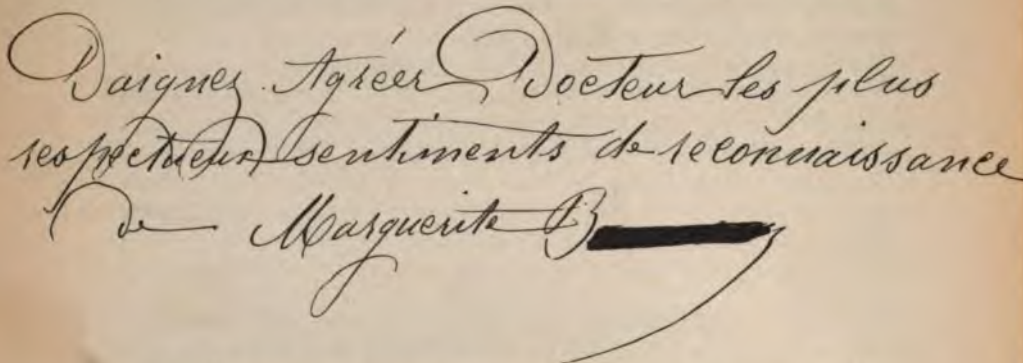 Daignez Agréer Docteur les plus
respectueux sentiments de reconnaissance
de Marguerite B